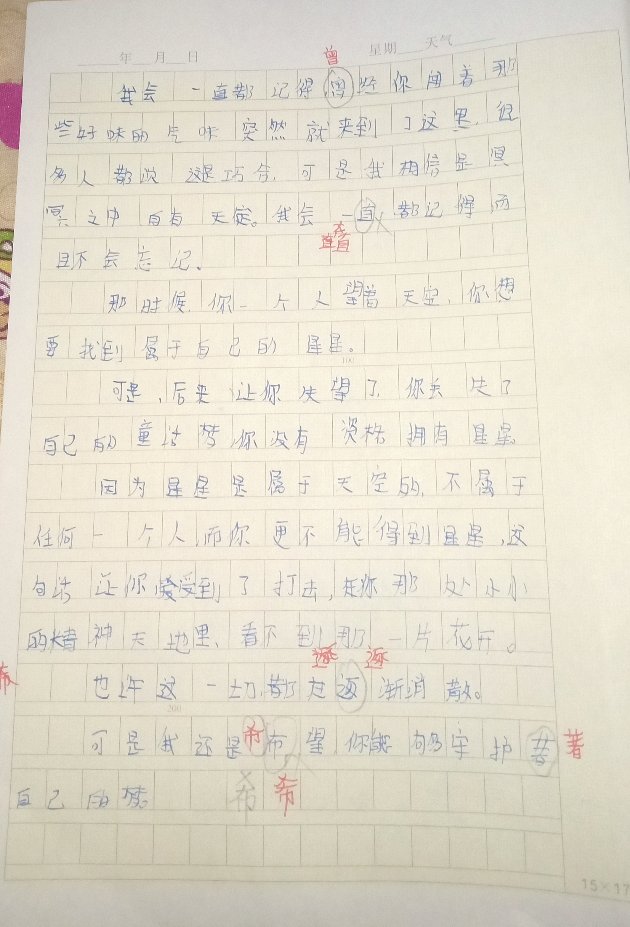 年 月 日 星期 天气
曾
我会一直都记得曾经你闻着那
些好味的气味突然就来到了这里,很
多人都说这是巧合,可是我相信是冥
冥之中自有天定。我会一直都记得而
直直
且不会忘记。
那时候,你一个人望着天空,你想
要找到属于自己的星星。
100
可是,后来让你失望了,你丢失了
自己的童话梦,你没有资格拥有星星
因为星星是属于天空的,不属于
任何一个人,而你更不能得到星星,这
句话让你受到了打击,在你那处小小
的精神天地里,看不到那一片花开。
逐 逐
也许这一切,都在逐渐消散。
200
希
可是我还是希望你能够多守护着 著
自己的梦。 希 希
15×17